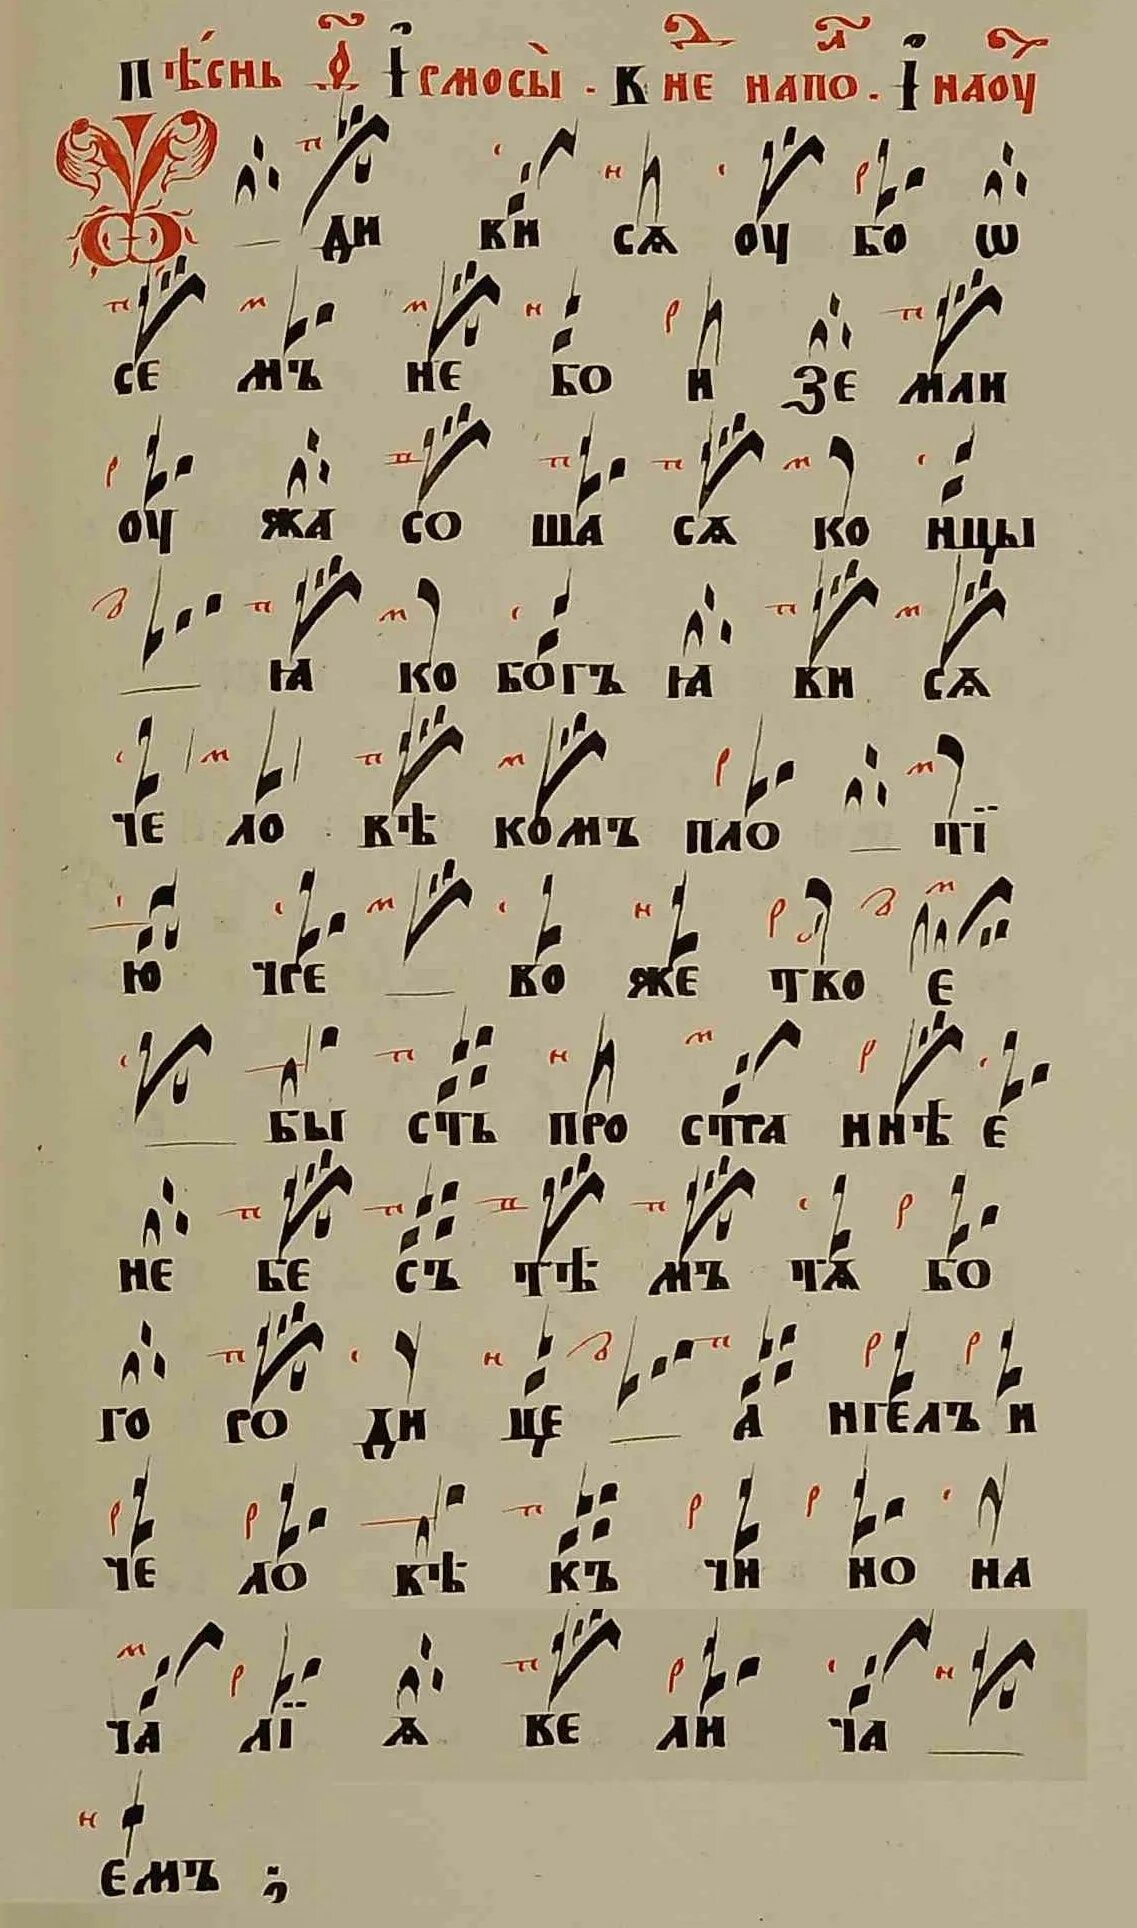 Пѣ́снь ѳ҃ І҆рмосы̀ . в не д напо л . І҆ наоу
У ди ви сѧ оу бо ѡ
се мъ не бо и зе мли
оу жа со ша сѧ ко нцы
ꙗ ко богъ ꙗ ви сѧ
че ло вѣ комъ пло тї
ю чре во же тво е
бы сть про стра ннѣ е
не бе съ тѣ мъ тѧ бо
го ро ди це а нгелъ и
че ло вѣ къ чи но на
ча лї ѧ ве ли ча
емъ ;